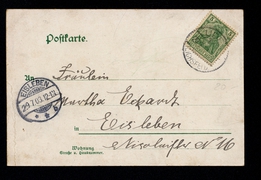 Postkarte.
An Fräulein
Martha Eckardt
in Eisleben
EISLEBEN
29.7.03.12-1
Wohnung
Straße u. Hausnummer
Nicolaistr. N 16